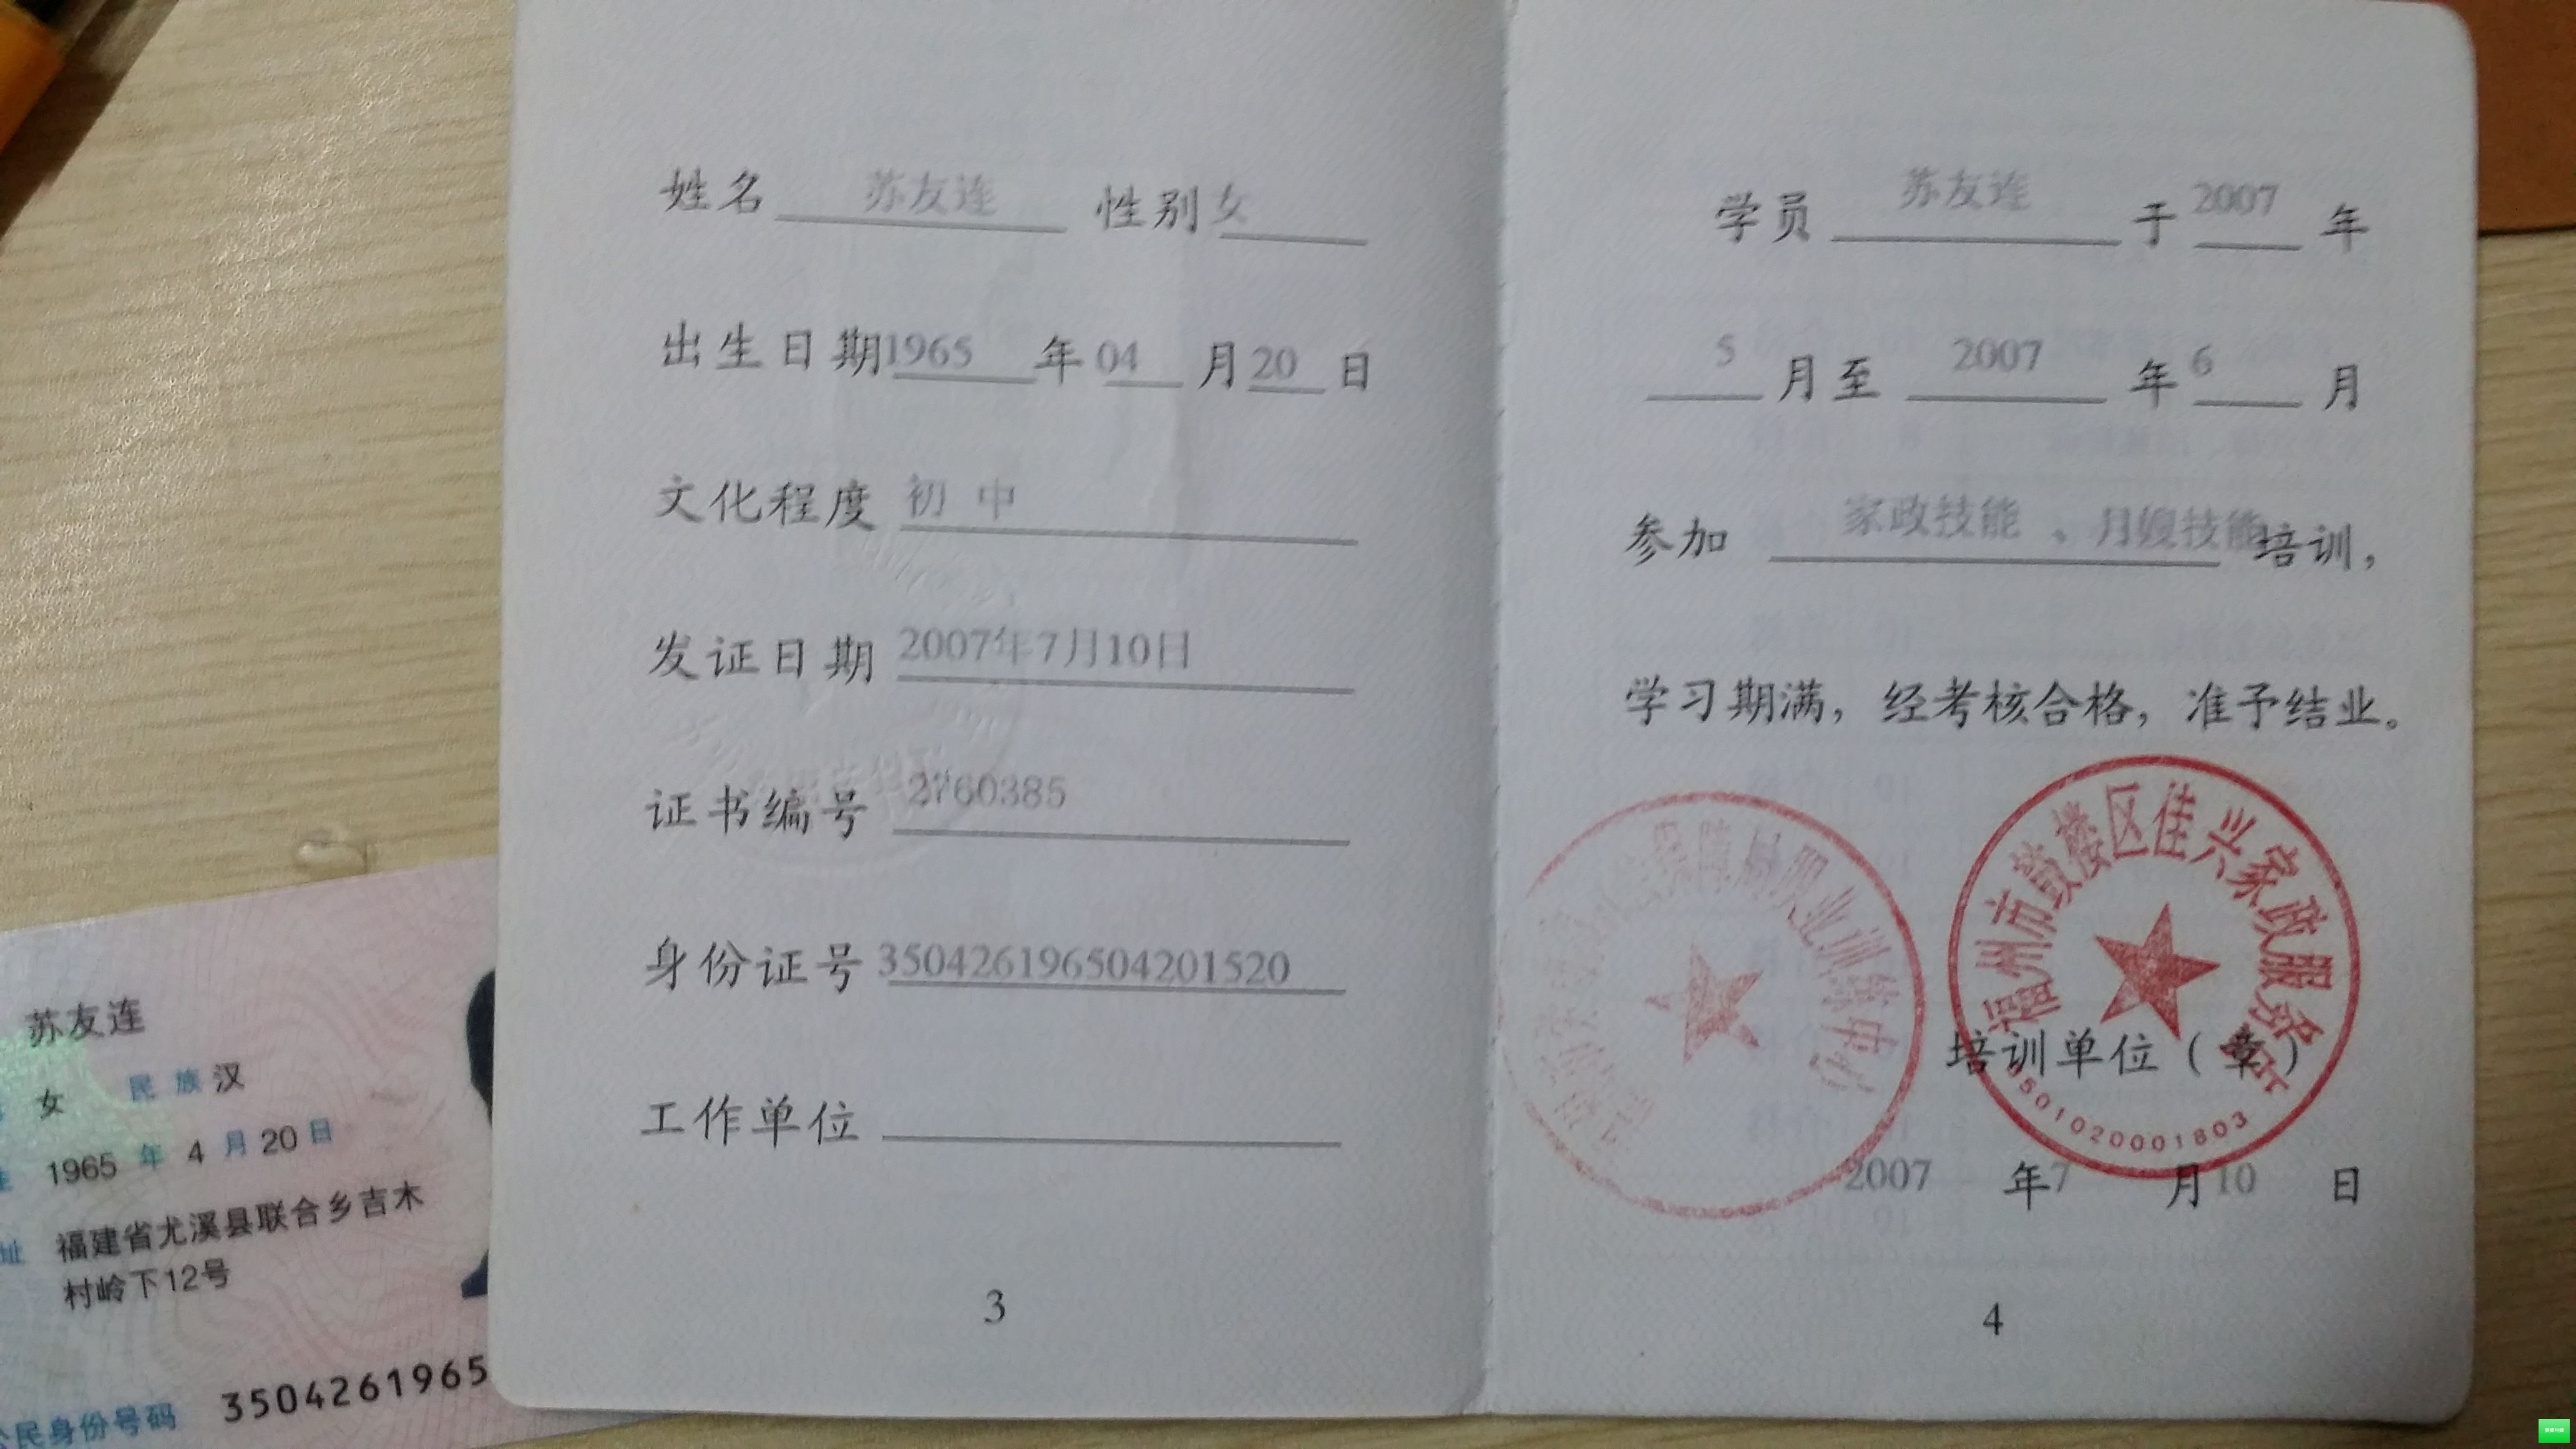 姓名 苏友连 性别 女
出生日期 1965 年 04 月 20 日
文化程度 初 中
发证日期 2007年7月10日
证书编号 2760385
身份证号 350426196504201520
工作单位
3
学员 苏友连 于 2007 年
5 月至 2007 年 6 月
参加 家政技能 、月嫂技能 培训，
学习期满，经考核合格，准予结业。
保障局职业训练中心
福州市鼓楼区佳兴家政服务
3501020001803
培训单位（章）
2007 年 7 月 10 日
4
苏友连
女 民族 汉
1965 年 4 月 20 日
址 福建省尤溪县联合乡吉木
村岭下12号
公民身份号码 3504261965